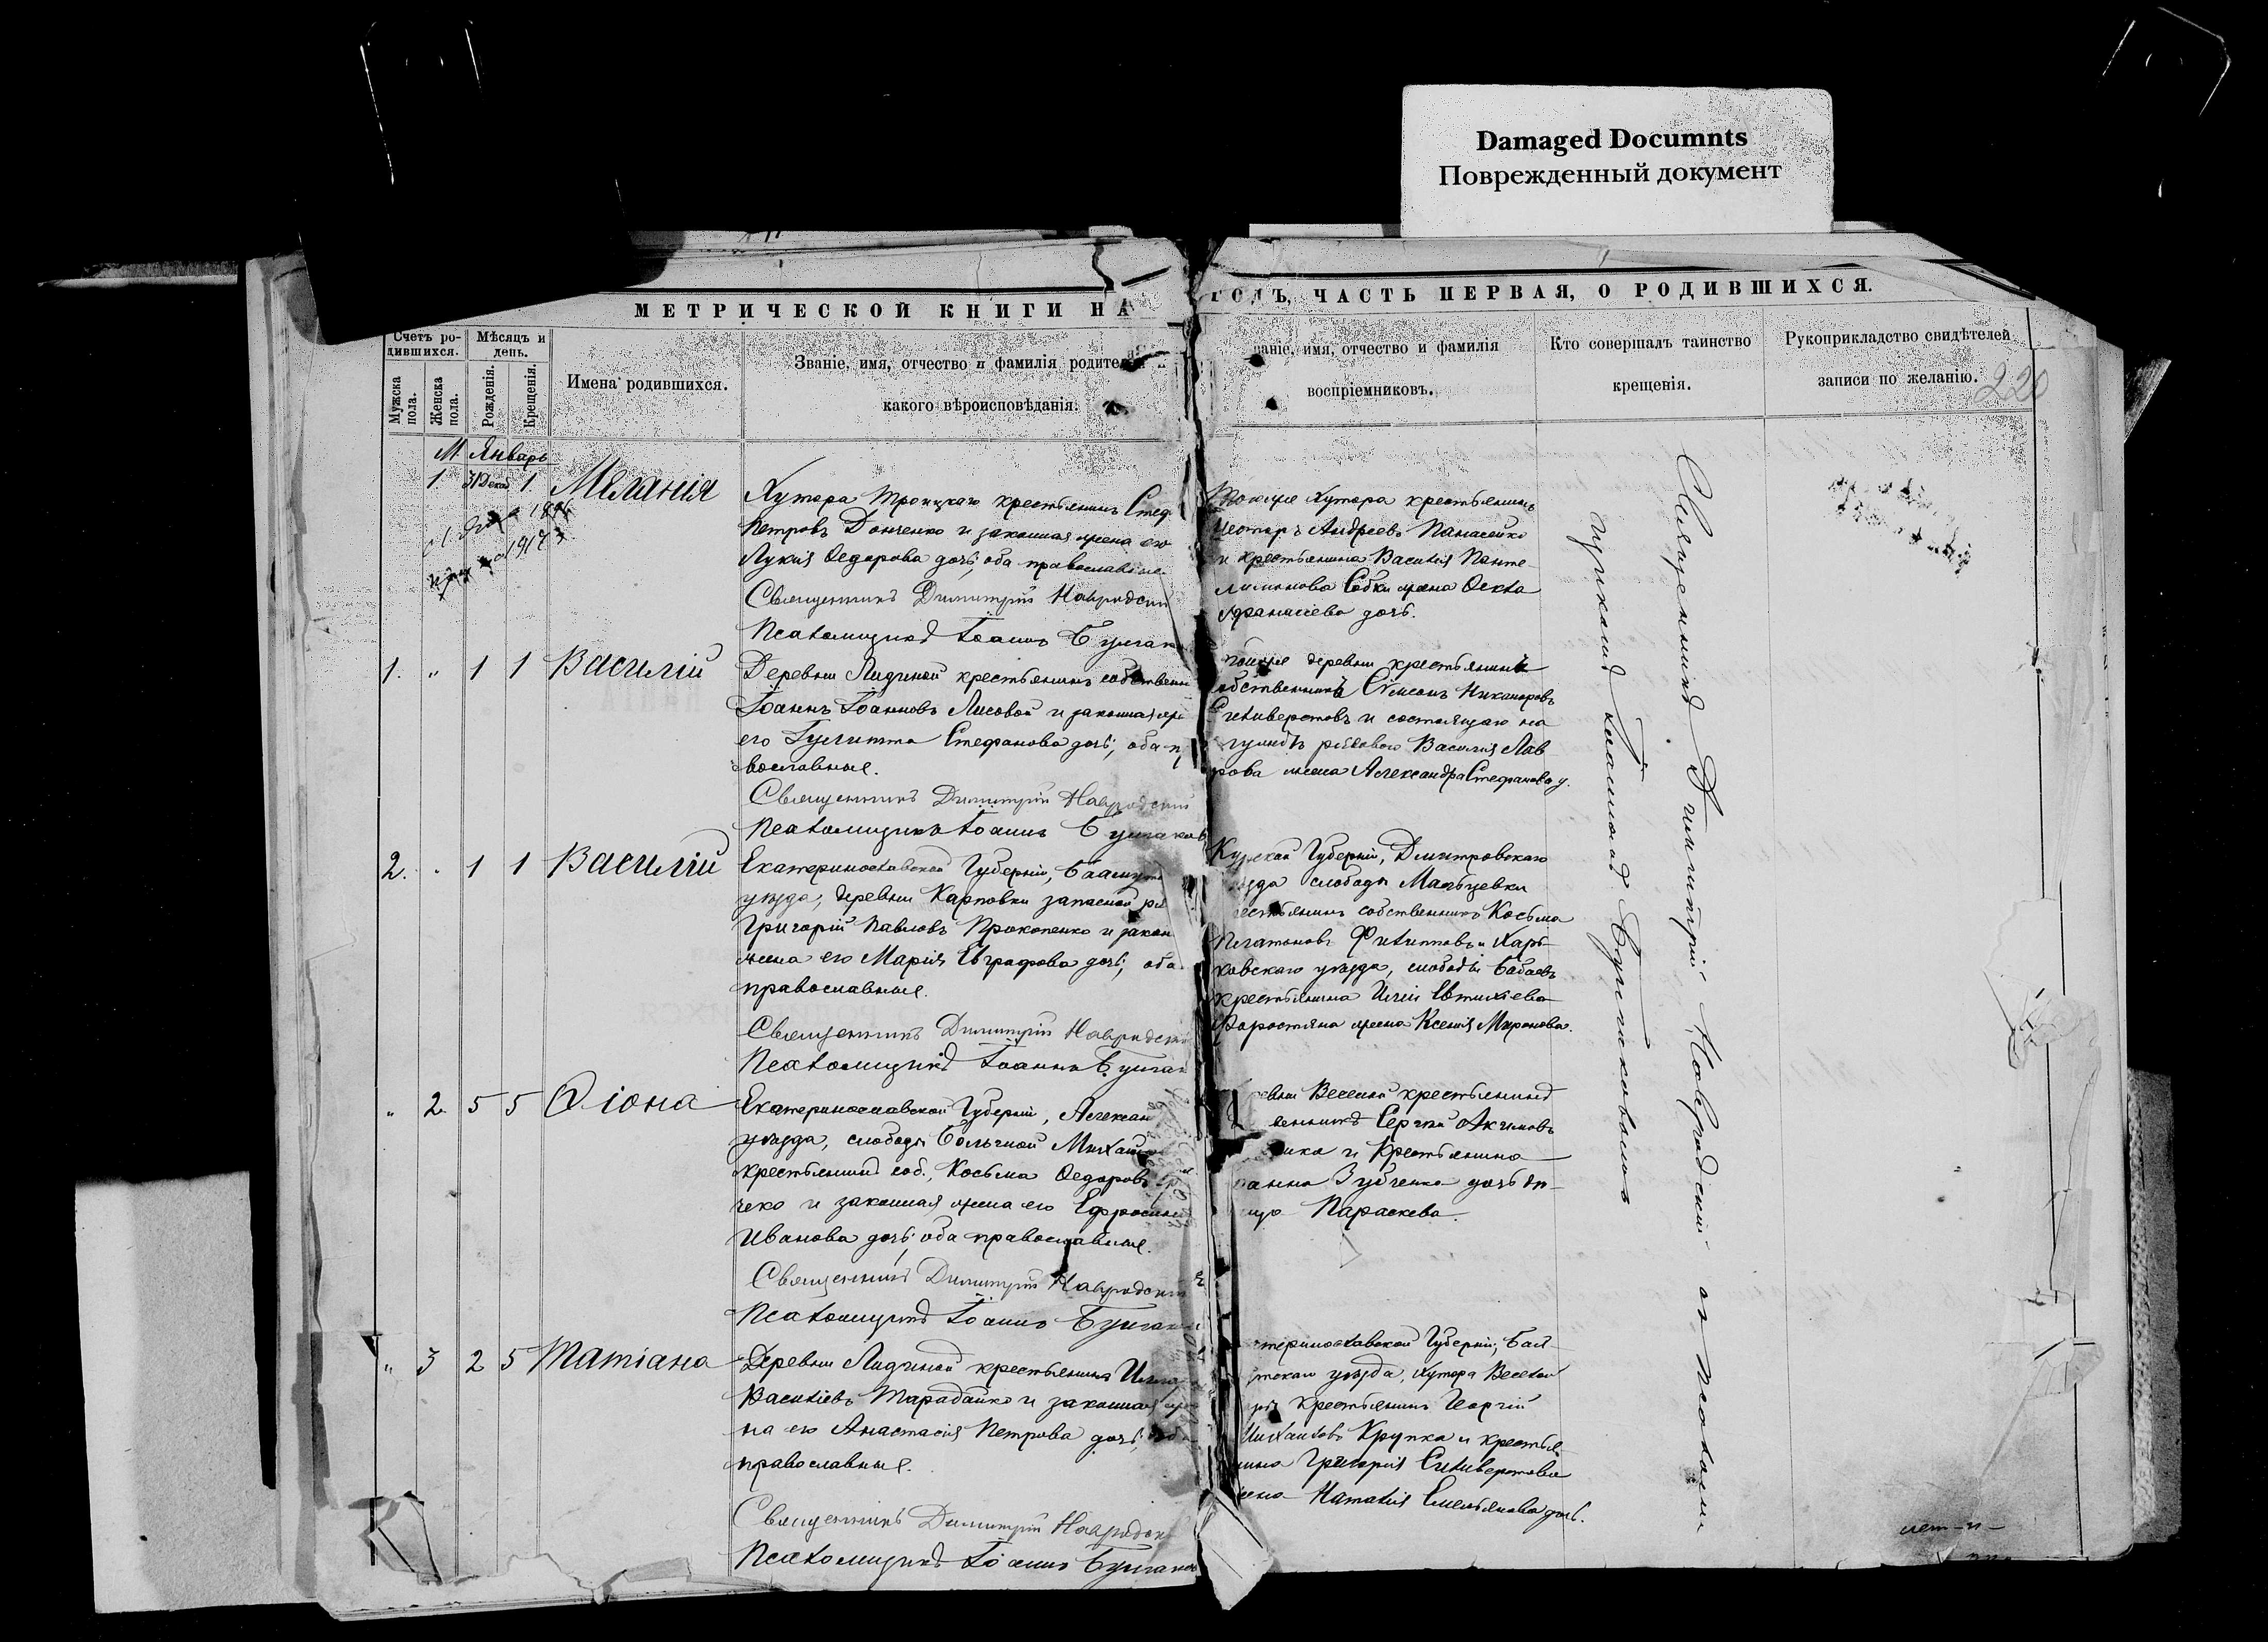 Damaged Documnts
Поврежденный документ
МЕТРИЧЕСКОЙ КНИГИ НА
ГОДЪ, ЧАСТЬ ПЕРВАЯ, О РОДИВШИХСЯ.
Счетъ ро-
дившихся.
Мужска
пола.
Женска
пола.
Мѣсяцъ и
день.
Рожденія.
Крещенія.
Имена родившихся.
Званіе, имя, отчество и фамилія родителей и
какого вѣроисповѣданія.
званіе, имя, отчество и фамилія
воспріемниковъ.
Кто совершалъ таинство
крещенія.
Рукоприкладство свидѣтелей
записи по желанію.
220
М. Январь
1 31 Декаб 1. Меланія
Хутора Троицкаго крестьянинъ Стеф
Петровъ Донченко и законная жена его
Лукія Ѳедорова дочь, оба православные
Священникъ Димитрій Навродскій
Псаломщикъ Іоаннъ Булгак
хутора крестьянинъ
Несторъ Андреевъ Панасенко
и крестьянина Василія Панте-
леимонова Собки жена Ѳекла
Афанасіева дочь.
1. " 1 1 Василій
Деревни Лидиной крестьянинъ собственни
Іоаннъ Іоанновъ Лисовой и законная же
его Гулитта Стефанова дочь, оба п
вославные.
Священникъ Димитрій Навродскій
Псаломщикъ Іоаннъ Булгаковъ
деревни крестьянинъ
обственникъ Сѵмеонъ Никаноровъ
Силиверстовъ и состоящаго на
рядового Василія Лав
рова жена Александра Стефанова д.
2. " 1 1 Василій
Екатеринославской Губерніи, Бахмут
уѣзда, деревни Карповки запасной ря
Григорій Павловъ Прокопенко и закон
жена его Марія Евграфова дочь, оба
православные.
Священникъ Димитрій Навродскій
Псаломщикъ Іоаннъ Булгак
Курской Губерніи, Дмитровскаго
уѣзда слободы Мальцевки
естьянинъ собственникъ Косьма
Платоновъ Филипповъ и Харь-
ковскаго уѣзда, слободы Бабаевъ
крестьянина Иліи Евтихіева
жена Ксенія Миронова.
" 2 5 5 Ѳіона
Екатеринославской Губерніи, Алексан
уѣзда, слободы Большой Михайло
крестьянинъ соб., Косьма Ѳедоровъ
чеко и законная жена его Ефросинія
Иванова дочь, оба православные.
Священникъ Димитрій Навродскій
Псаломщикъ Іоаннъ Булгаков
ревни Веселой крестьянинъ
венникъ Сергій Акимовъ
и крестьянина
анна Зубченка дочь дѣ-
ица Параскева.
" 3 2 5 Татіана
Деревни Лидиной крестьянинъ Илія
Василіевъ Тарадайко и законная же
на его Анастасія Петрова дочь, оба
православные.
Священникъ Димитрій Навродск
Псаломщикъ Іоаннъ Булгаков
теринославской Губерніи, Бах-
мутскаго уѣзда, хутора Веселой
крестьянинъ Георгій
Михаиловъ Крупка и крестья
нина Григорія Силиверстова
жена Наталія Емельянова дочь.
Священникъ Димитрій Навродскій съ псалом
щикомъ Іоанномъ Булгаковымъ